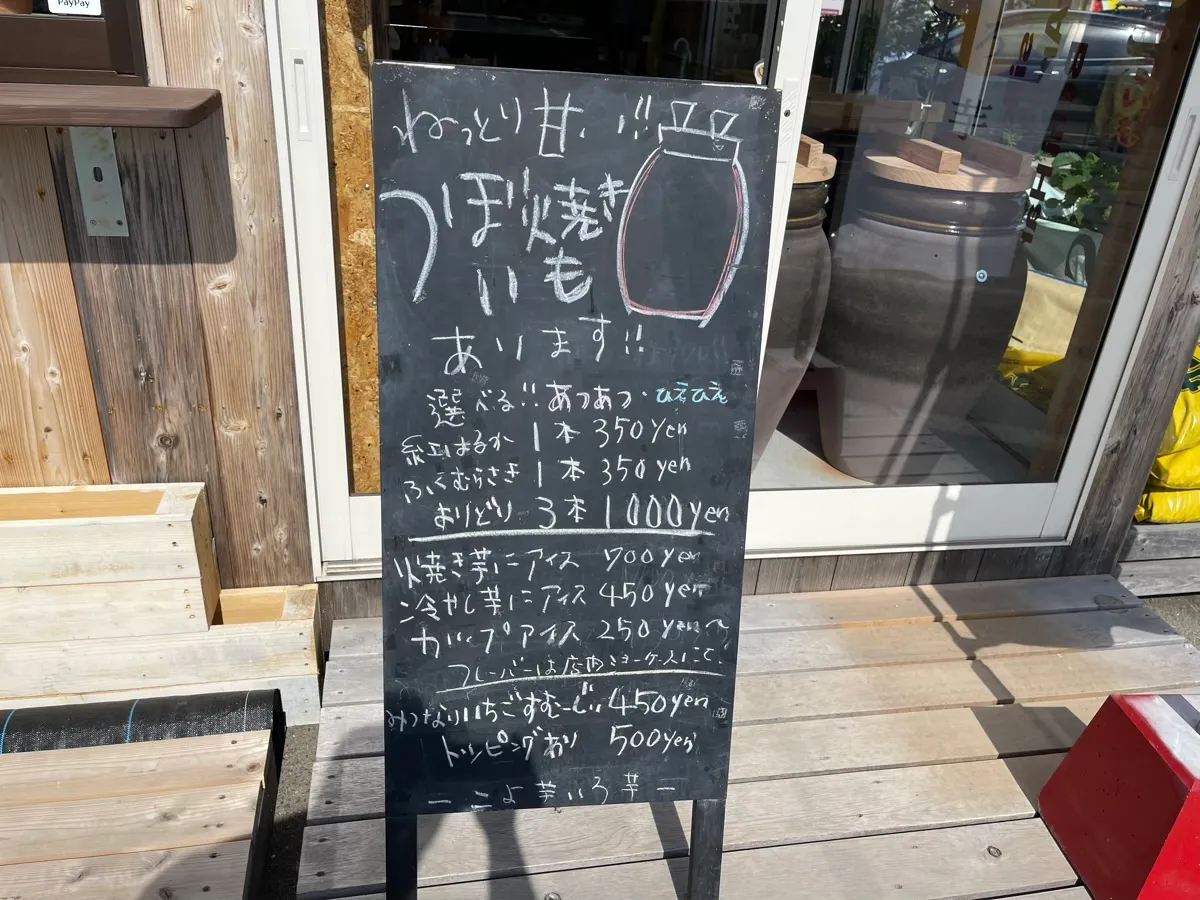 PayPay
ねっとり甘い!!
つぼ焼き
いも
あります!!
選べる!!あつあつ・ひえひえ
紅はるか 1本 350yen
ふくむらさき 1本 350yen
よりどり 3本 1000yen
焼き芋にアイス 700yen
冷やし芋にアイス 450yen
カップアイス 250yen〜
フレーバーは店内ショーケースにて
いちごすむーじぃ 450yen
トッピングあり 500yen